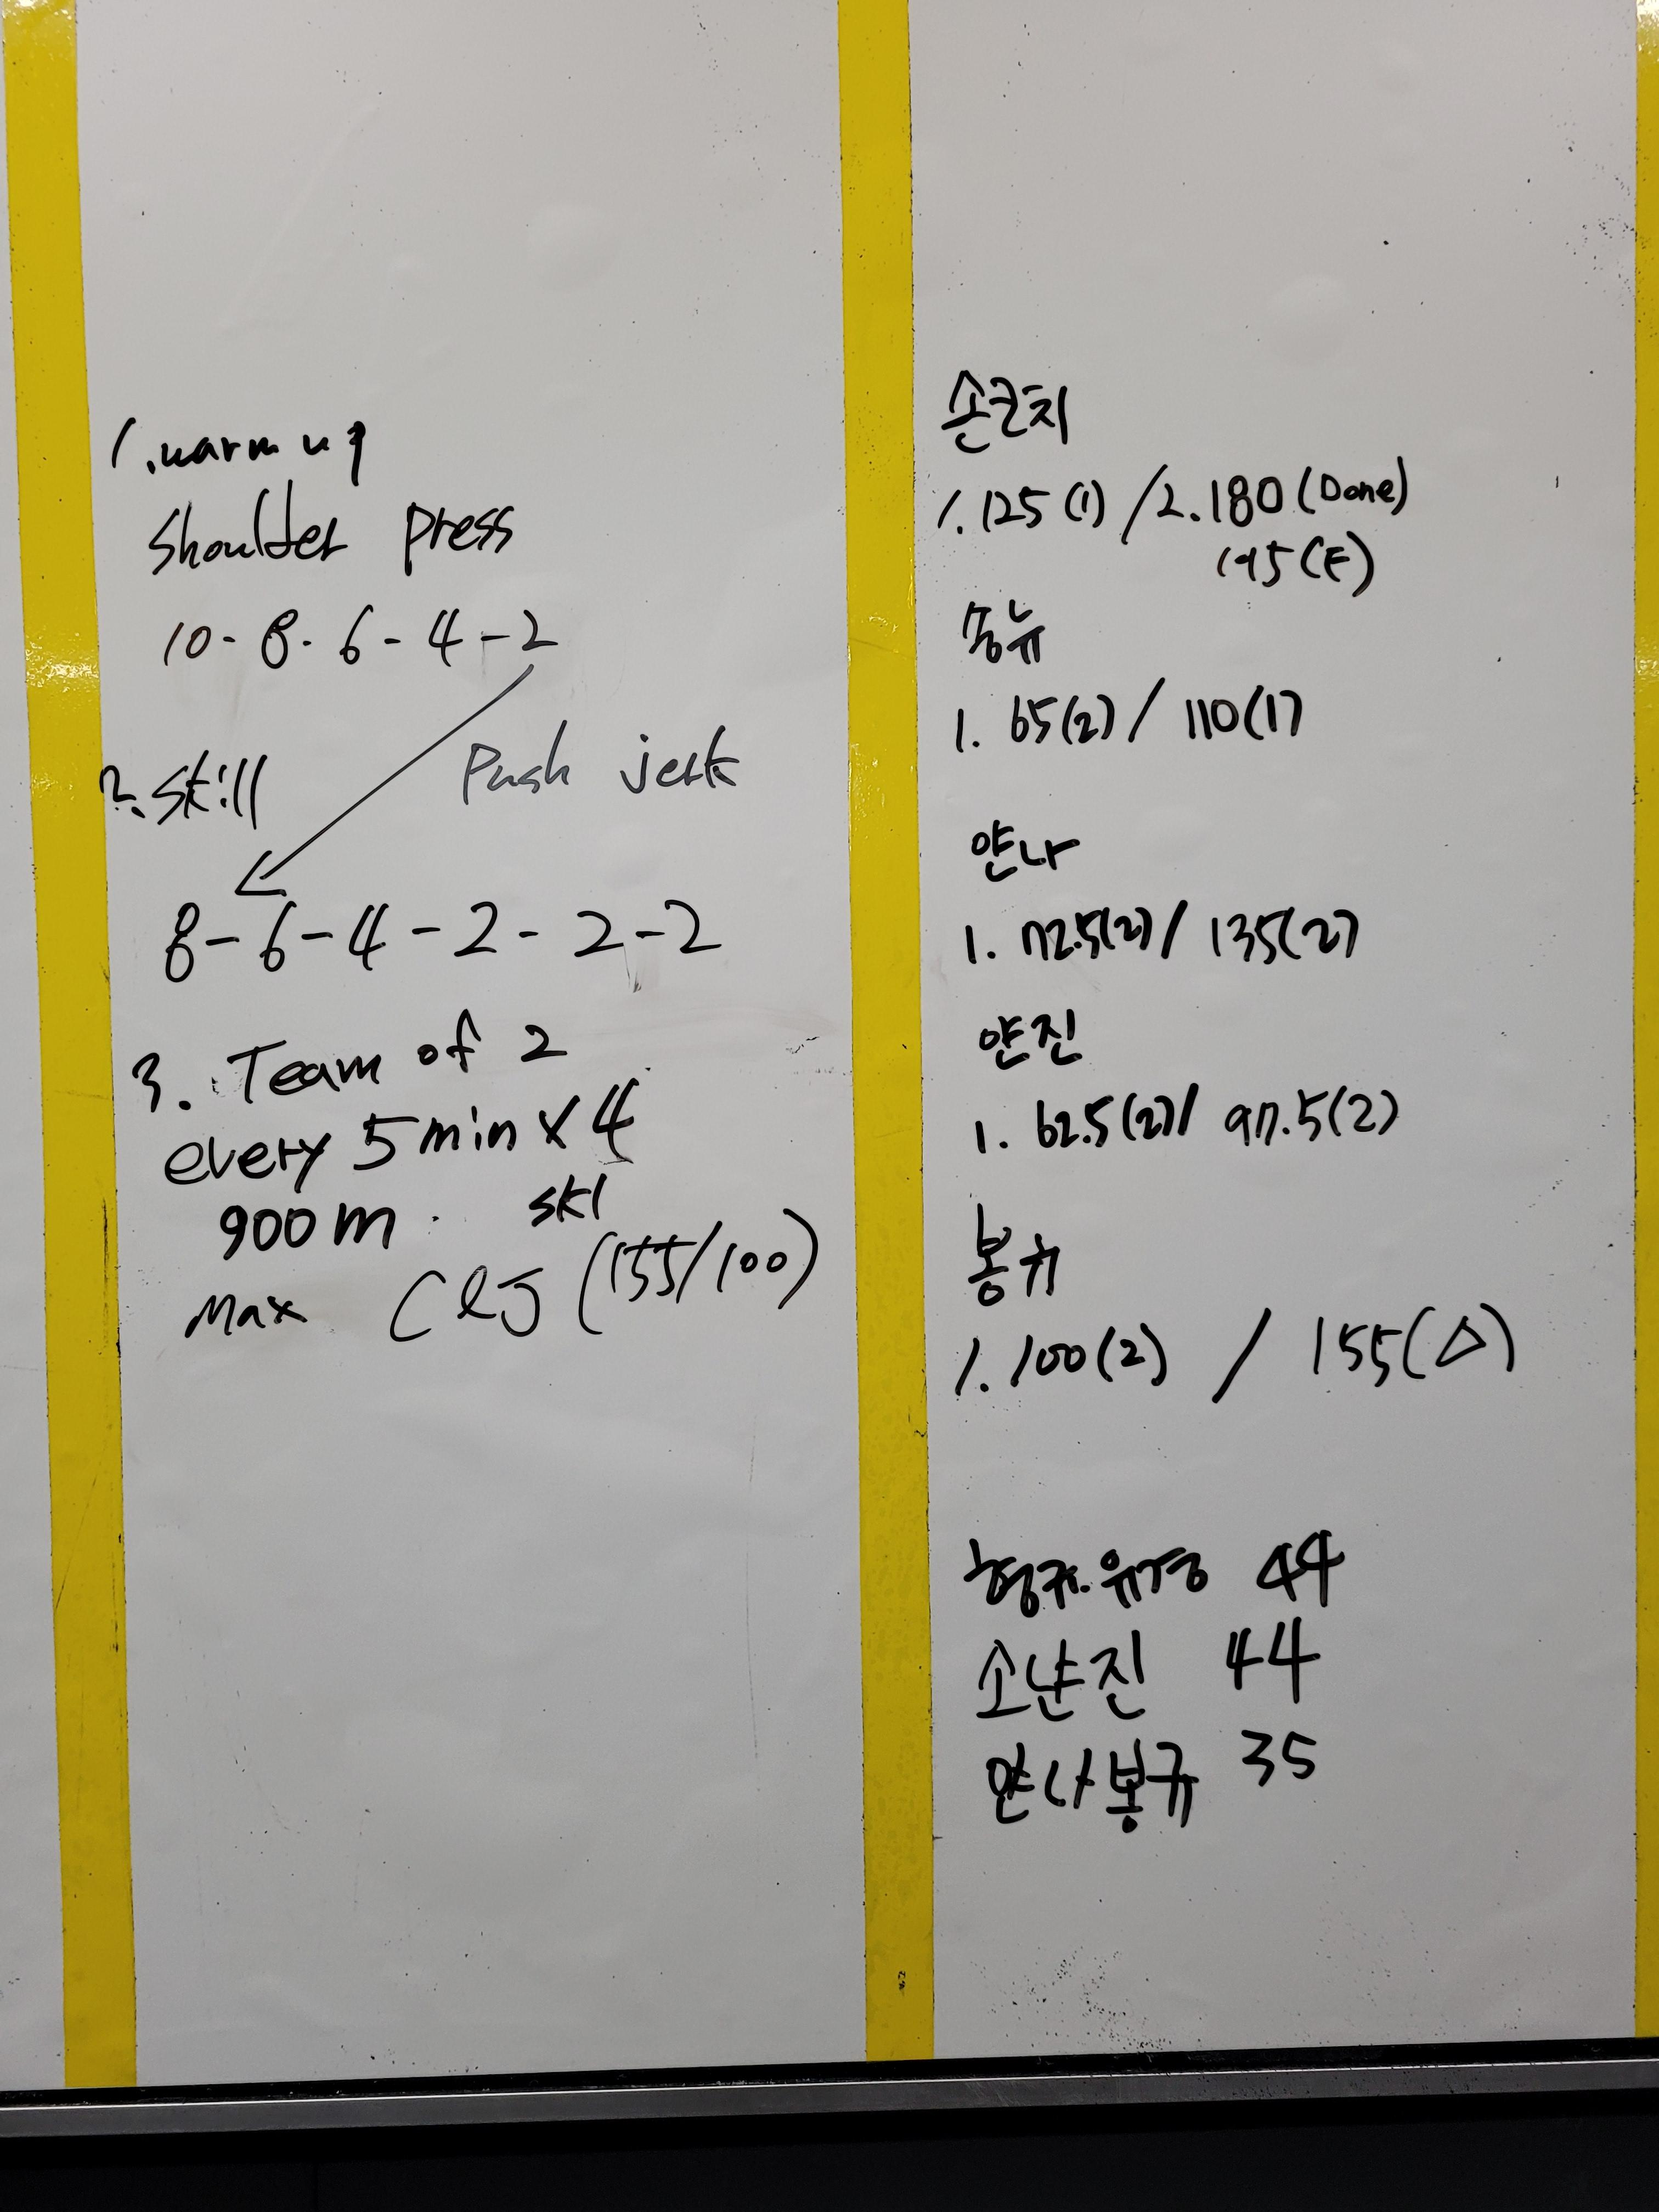 1. warm up
shoulder press
10-8-6-4-2
push jerk
2. skill
8-6-4-2-2-2
3. Team of 2
every 5min x 4
900m ski
max C&J (155/100)
손근지
1. 125(1) / 2. 180(Done)
195(F)
송뉴
1. 65(2) / 110(1)
얀나
1. 72.5(2) / 135(2)
얀진
1. 62.5(2) / 97.5(2)
봉규
1. 100(2) / 155(△)
형규.유정 44
소냔진 44
얀나봉규 35